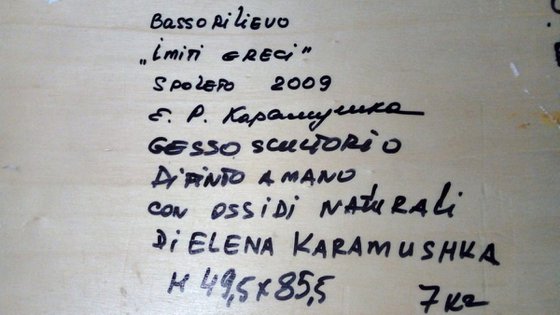 BASSORILIEVO
„IMITI GRECI"
SPOLETO 2009
Е. Р. Карамушка
GESSO SCULTORIO
DIPINTO A MANO
CON OSSIDI NATURALI
DI ELENA KARAMUSHKA
H 49,5x85,5
7 Kg